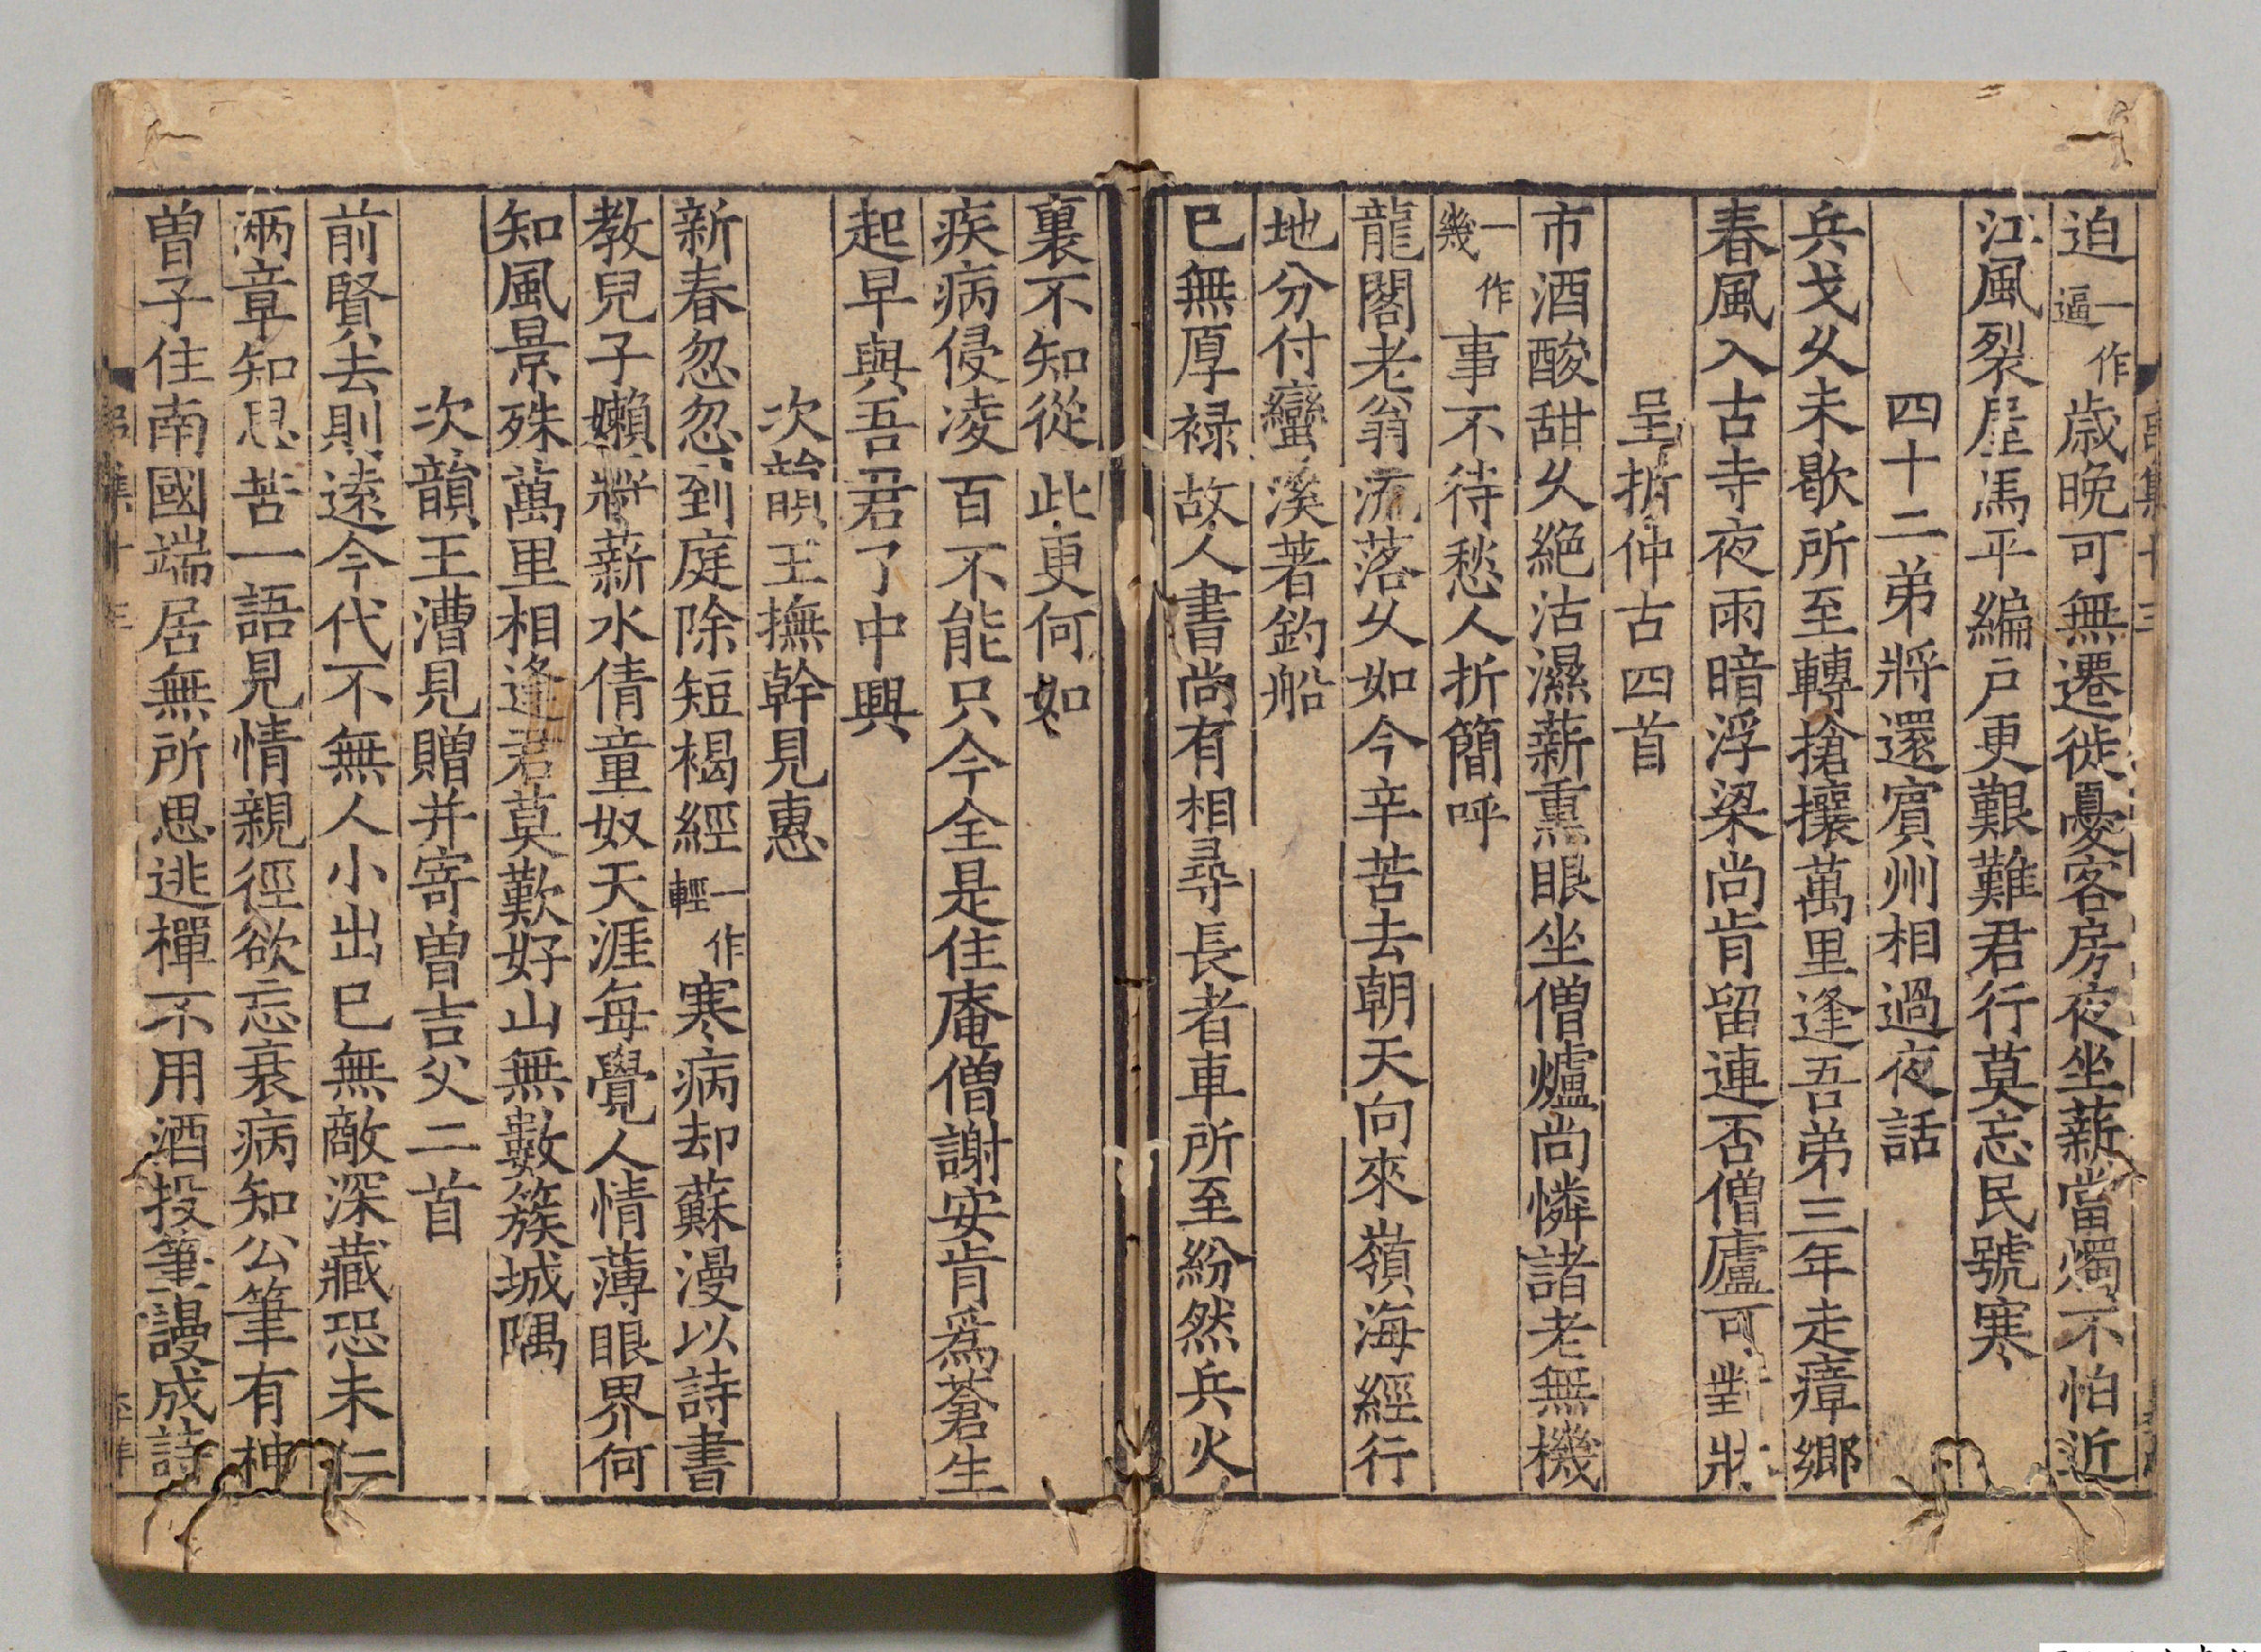 迫一作逼歲晚可無遷徙憂客房夜坐薪當燭不怕近
江風裂屋馬平編戶更艱難君行莫忘民號寒
四十二弟將還賓州相過夜話
兵戈久未歇所至轉搶攘萬里逢吾弟三年走瘴鄉
春風入古寺夜雨暗浮梁尚肯留連否僧廬可對牀
呈折仲古四首
市酒酸甜久絕沽濕薪熏眼坐僧爐尚憐諸老無機
一作幾事不待愁人折簡呼
龍閣老翁流落久如今辛苦去朝天向來嶺海經行
地分付蠻溪著釣船
已無厚祿故人書尚有相尋長者車所至紛然兵火
裏不知從此更何如
疾病侵凌百不能只今全是住庵僧謝安肯爲蒼生
起早與吾君了中興
次韻王撫幹見惠
新春忽忽到庭除短褐經一作輕寒病却蘇漫以詩書
教兒子嬾將薪水倩童奴天涯每覺人情薄眼界何
知風景殊萬里相逢君莫歎好山無數簇城隅
次韻王漕見贈并寄曽吉父二首
前賢去則遠今代不無人小出已無敵深藏恐未仁
兩章知思苦一語見情親徑欲忘衰病知公筆有神
曽子住南國端居無所思逃禪不用酒投筆謾成詩